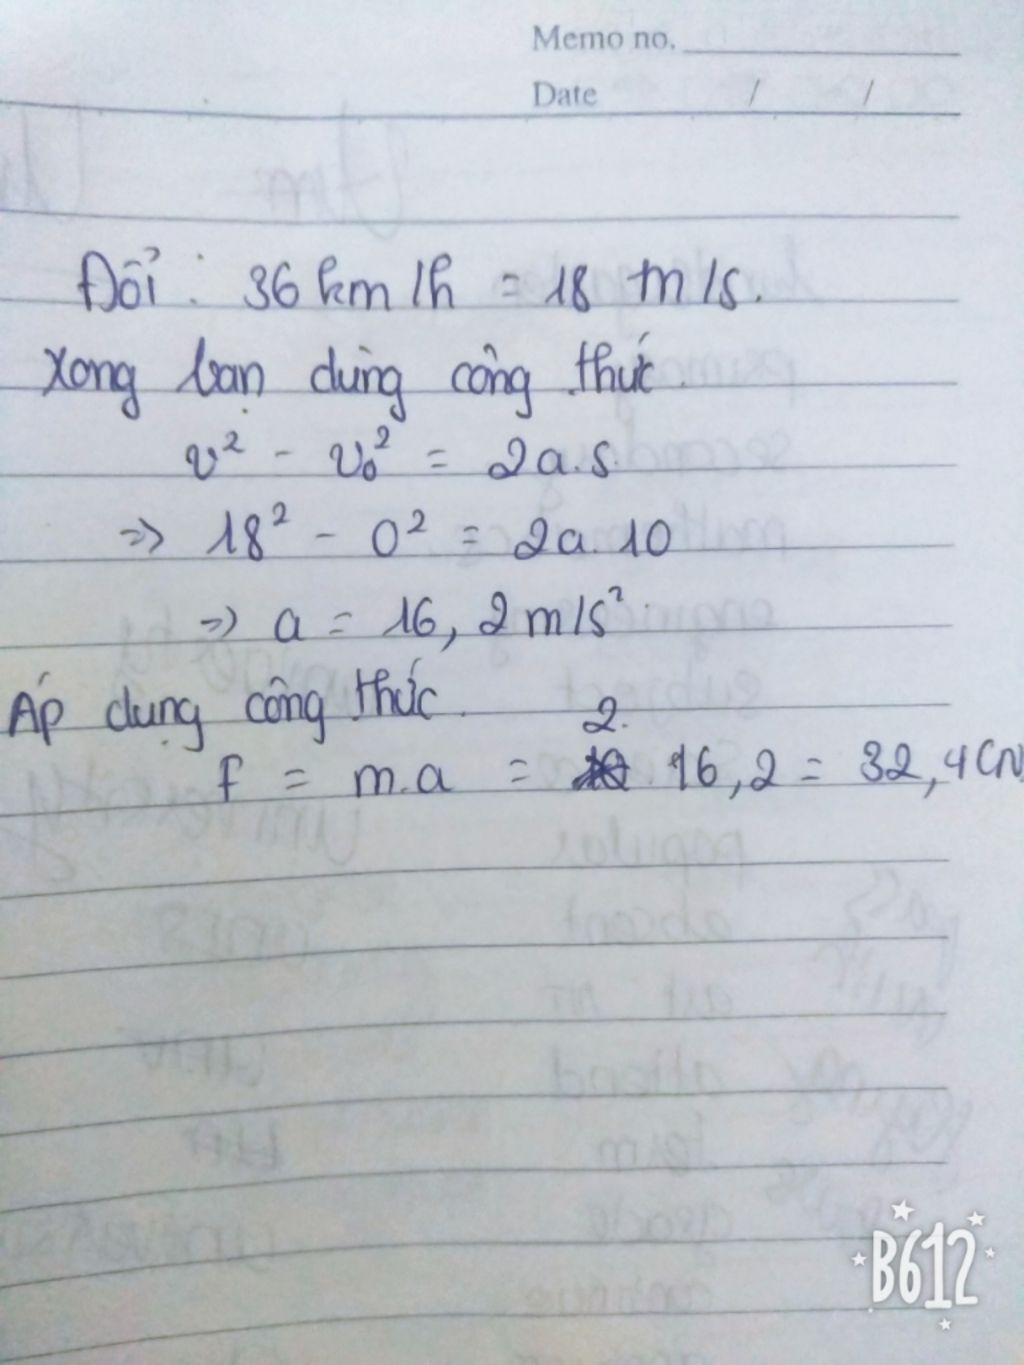 Memo no.
Date / /
Đổi : 36 km/h = 18 m/s.
Xong bạn dùng công thức
v² - v₀² = 2a.s.
=> 18² - 0² = 2a.10
=> a = 16,2 m/s²
Áp dụng công thức.
f = m.a = 2. 16,2 = 32,4 (N
B612